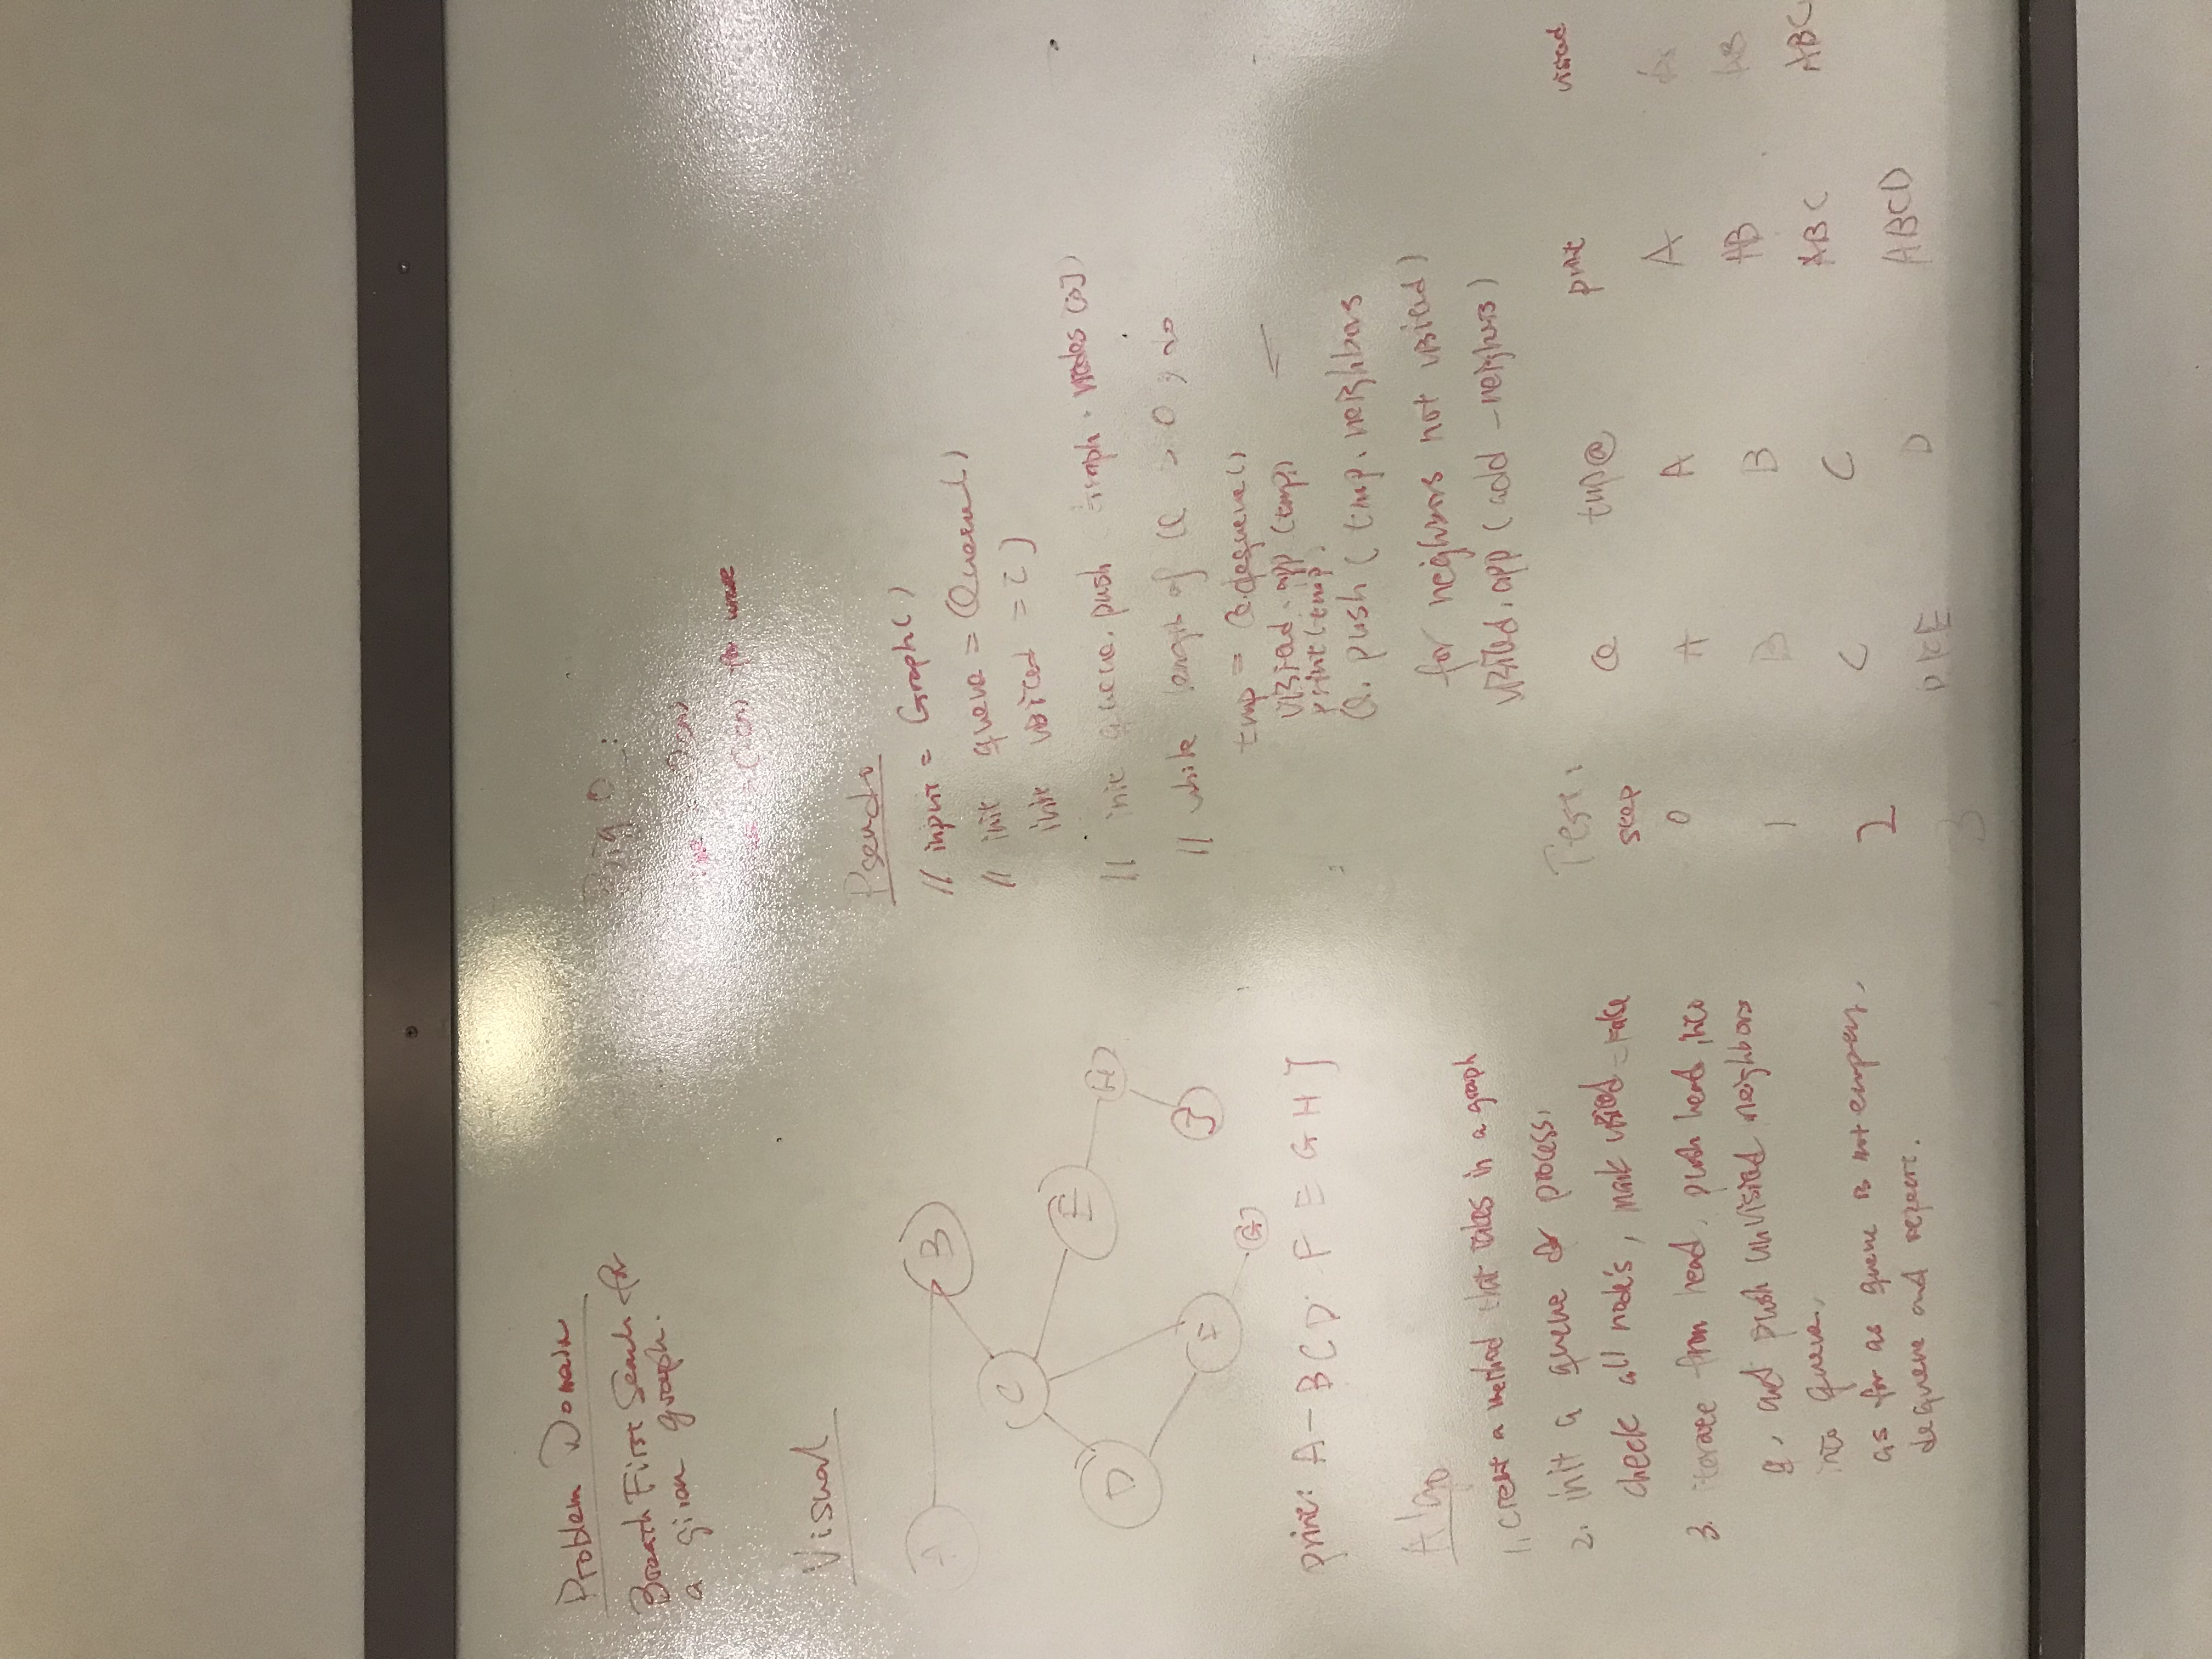 Problem Domain
Breath First Search for
a given graph.
Visual
A
B
C
D
E
F
G
H
J
print: A - B C D F E G H J
Algo
1. Creat a method that takes in a graph
2. init a queue process,
check all node's, mark visited = False
3. iterate from head, push head into
q, and push unvisited neighbors
into queue,
as for as queue is not empty,
dequeue and repeat.
Big O :
= O(n)
= O(n) for worse
Pseudo
// input = Graph( )
// init queue = Queue( )
init visited = [ ]
// init queue. push Graph. nodes [0] )
// while length of Q > 0 ; do
tmp = Q.dequeue( )
visited. app (tmp)
print (tmp)
Q. push ( tmp. neighbors
for neighbors not visited )
visited. app ( add - neighbors )
Test:
step Q tmp@ print visited
0 A A A
1 B B AB AB
2 C C ABC ABC
3 D F E D ABCD